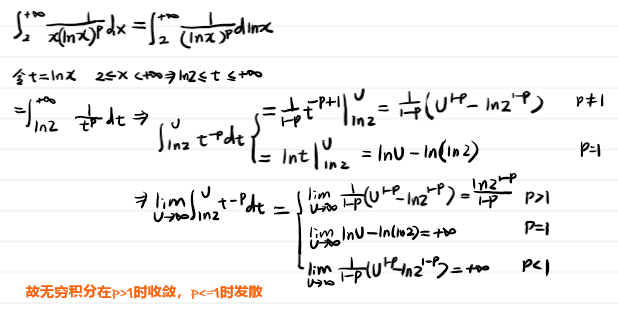 ∫₂^{+∞} 1/(x(lnx)^p) dx = ∫₂^{+∞} 1/(lnx)^p dlnx
令 t=lnx 2≤x<+∞ ⇒ ln2≤t≤+∞
= ∫_{ln2}^{+∞} 1/t^p dt ⇒ ∫_{ln2}^{U} t^{-p}dt { = 1/(1-p) t^{-p+1} |_{ln2}^{U} = 1/(1-p) (U^{1-p} - ln2^{1-p}) p≠1
= lnt |_{ln2}^{U} = lnU - ln(ln2) p=1
⇒ lim_{U→∞} ∫_{ln2}^{U} t^{-p}dt = { lim_{U→∞} 1/(1-p) (U^{1-p} - ln2^{1-p}) = ln2^{1-p}/(1-p) p>1
lim_{U→∞} lnU - ln(ln2) = +∞ p=1
lim_{U→∞} 1/(1-p) (U^{1-p} - ln2^{1-p}) = +∞ p<1
故无穷积分在p>1时收敛，p<=1时发散